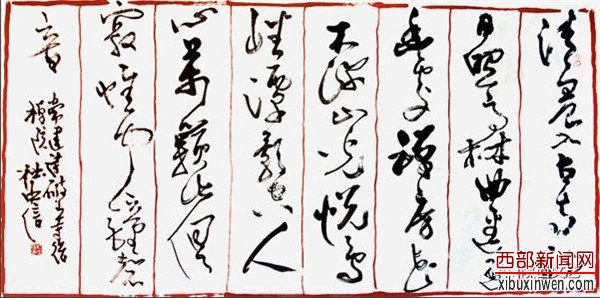 清晨入古寺初
日照高林曲迳通
幽處禅房花
木深山光悦鸟
性潭影空人
心萬籁此俱
寂惟闻鐘磬
音
常建題破山寺後
禅院 杜忠信
西部新闻网
xibuxinwen.com